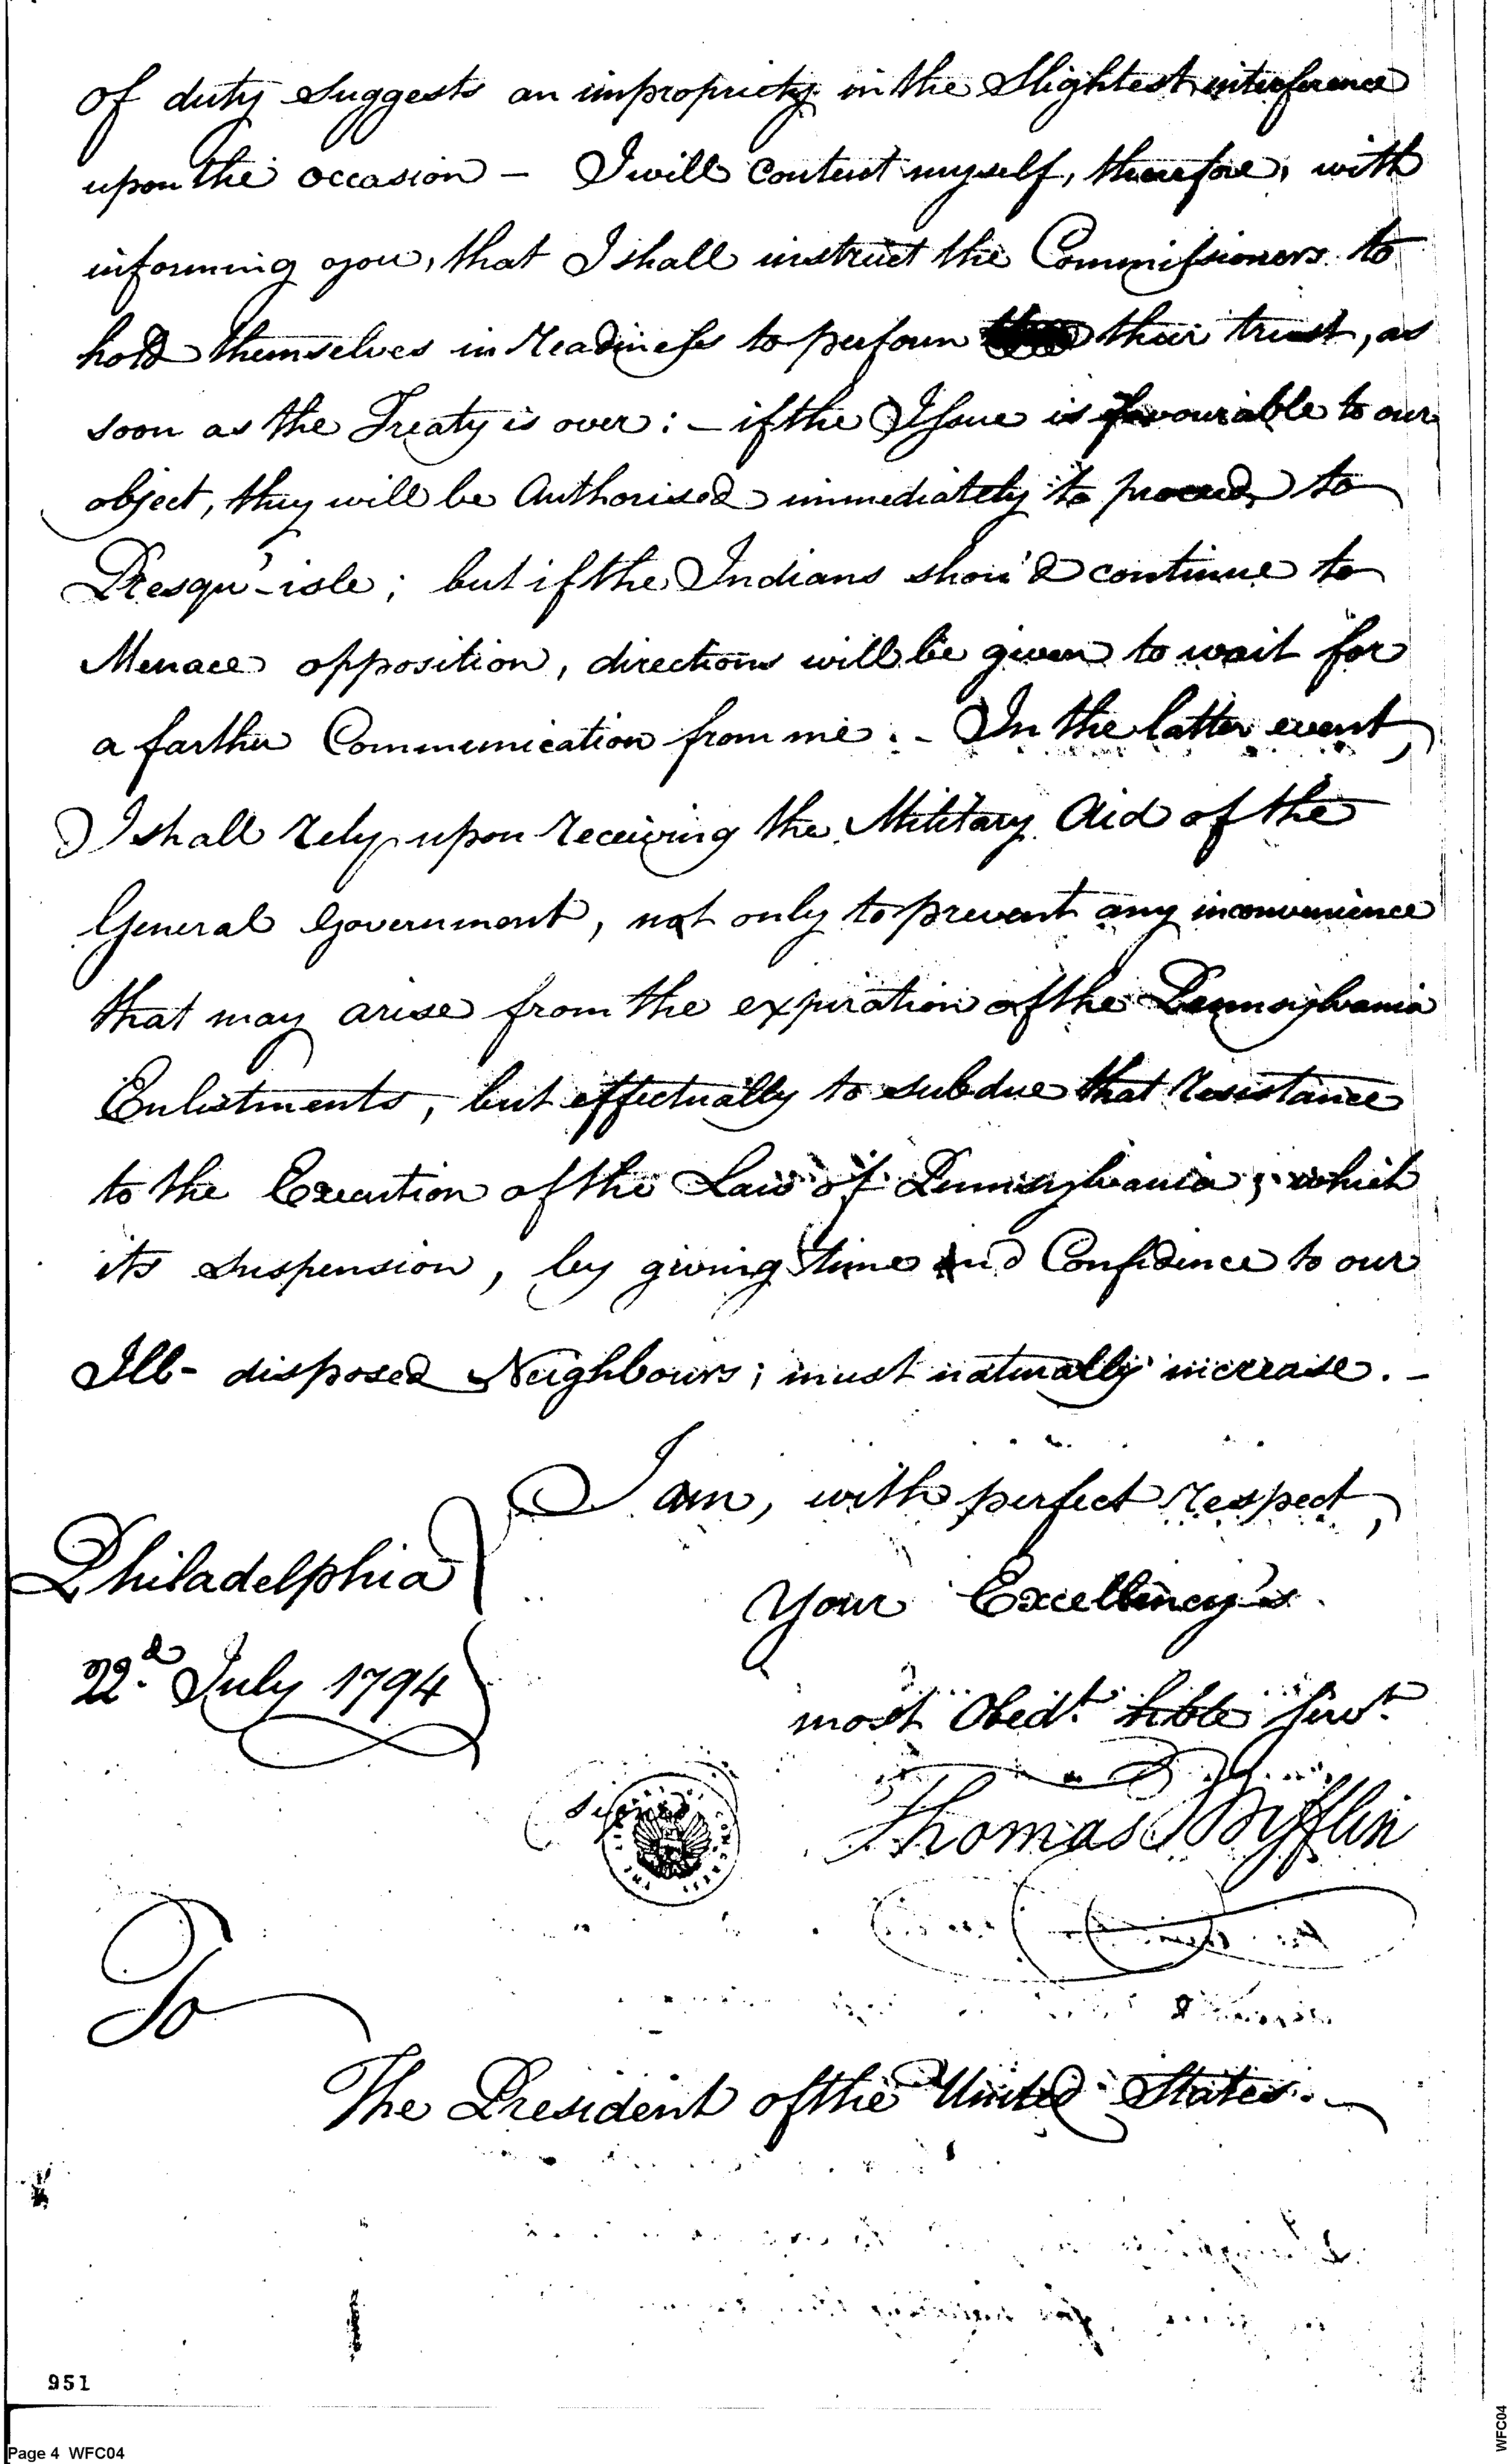 of duty suggests an impropriety in the Slightest interference
upon the occasion – I will Content myself, therefore, with
informing you, that I shall instruct the Commissioners to
hold themselves in Readiness to perform their trust, as
soon as the Treaty is over: – if the Issue is favourable to our
object, they will be Authorised immediately to proceed to
Presqu'-isle; but if the Indians shou'd continue to
Menace opposition, directions will be given to wait for
a farther Communication from me. – In the latter event,
I shall rely upon receiving the Military Aid of the
General Government, not only to prevent any inconvenience
that may arise from the expiration of the Pennsylvania
Enlistments, but effectually to subdue that resistance
to the Execution of the Law of Pennsylvania, which
its suspension, by giving time and Confidence to our
Ill-disposed Neighbours; must naturally increase. –
I am, with perfect respect,
Philadelphia
Your Excellency's
22.d July 1794
most Obed.t hble Serv.t
signed
Thomas Mifflin
THE LIBRARY OF CONGRESS
To
The President of the United States. –
951
Page 4 WFC04
WFC04